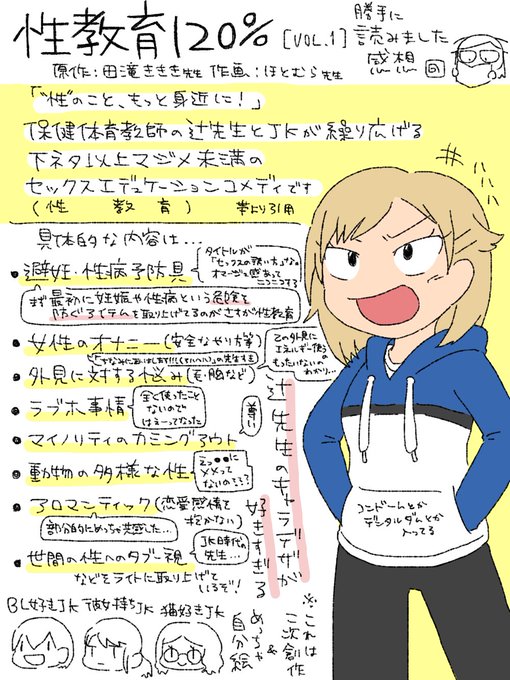 性教育120% [VOL.1]
勝手に
読みました
感想
回
原作:田滝ききき先生 作画:ほとむら先生
「"性"のこと、もっと身近に!」
保健体育教師の辻先生とJKが繰り広げる
下ネタ以上マジメ未満の
セックスエデュケーションコメディです
(性 教育) 帯より引用
具体的な内容は…
・避妊・性病予防具
タイトルが
オマージュ感あって
まず最初に妊娠や性病という危険を
防ぐアイテムを取り上げてるのがさすが性教育
・女性のオナニー(安全なやり方等)
・外見に対する悩み(毛・胸など)
この外見に
エネルギー使うの
もったいないの
わかり…
・ラブホ事情
全く使ったこと
ないので
はえーってなった
・マイノリティのカミングアウト
尊い
・動物の多様な性
えっ●●に
メメって
ないの…!?
・アロマンティック(恋愛感情を
抱かない)
部分的にめっちゃ共感した…
・世間の性へのタブー視
JK時代の
先生…
などをライトに取り上げて
いるぞ!
辻先生のキャラデザが
好きすぎる
コンドームとか
デンタルダムとか
入ってる
BL好きJK 彼女持ちJK 猫好きJK
※これは
二次創作
&
めっちゃ
自分絵